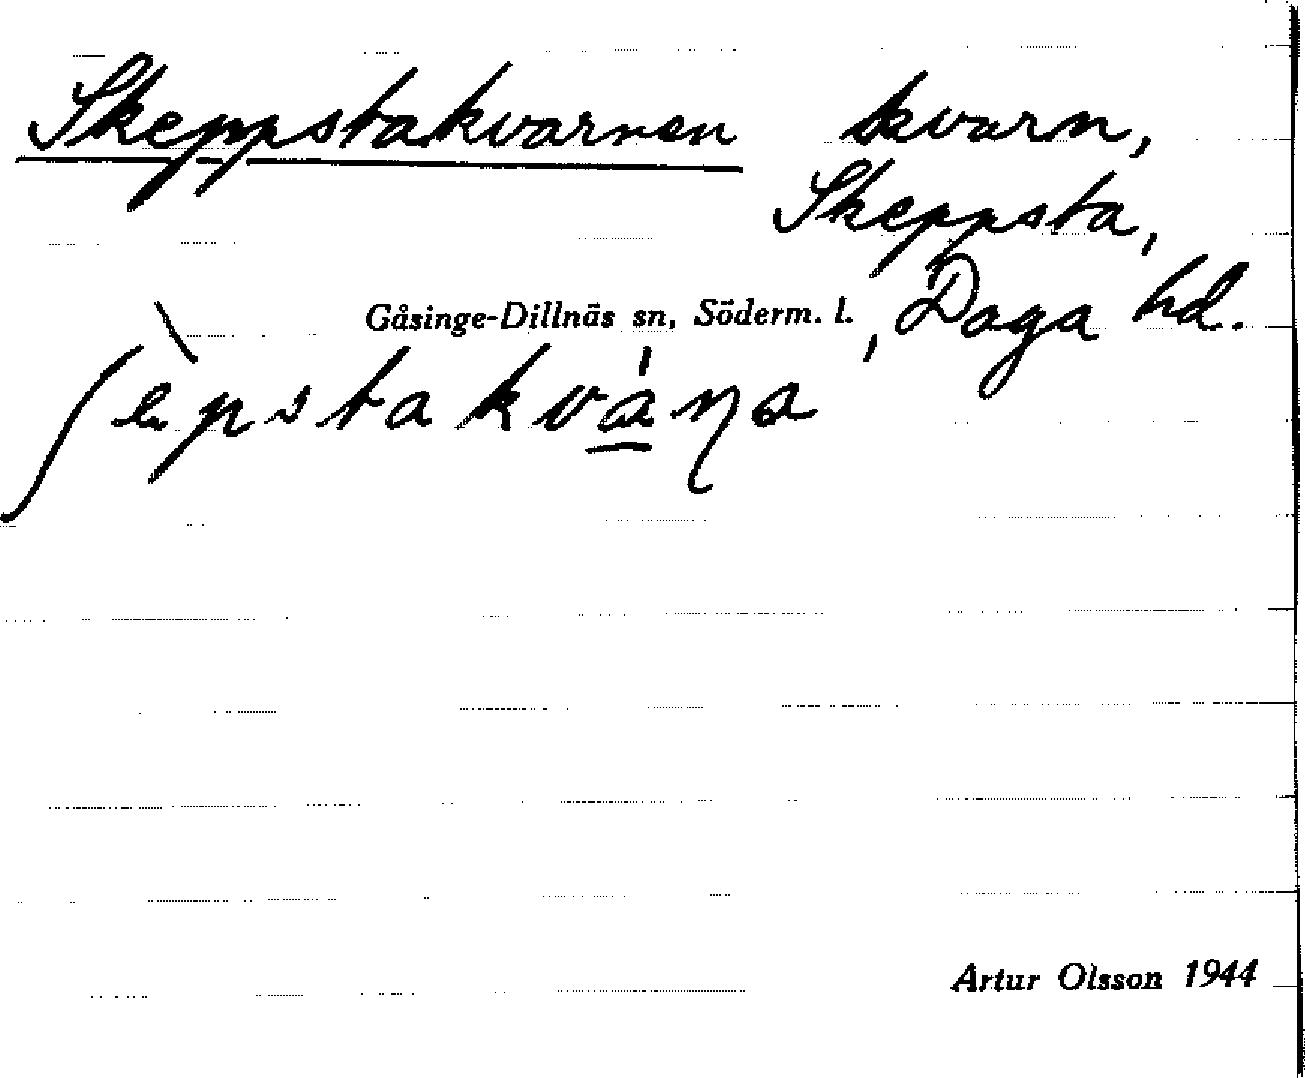 Skeppstakvarnen kvarn,
Skeppsta,
Gåsinge-Dillnäs sn, Söderm. l., Daga hd.
ʃèpstakvánɳa
Artur Olsson 1944